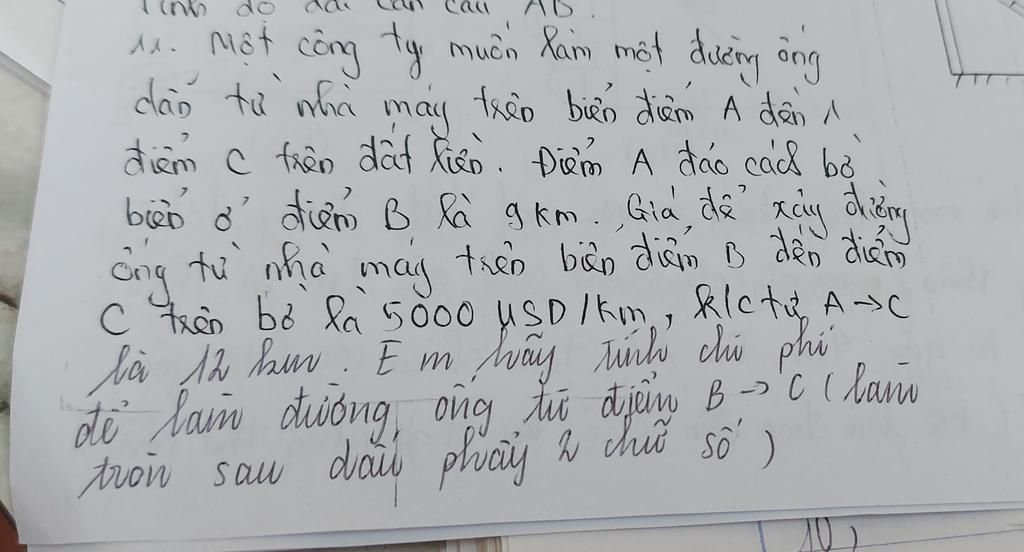 Tính độ dài cần cẩu AB.
11. Một công ty muốn làm một đường ống
dẫn từ nhà máy trên biển điểm A đến 1
điểm C trên đất liền. Điểm A đảo cách bờ
biển ở điểm B là 9km. Giá để xây đường
ống từ nhà máy trên biển điểm B đến điểm
C trên bờ là 5000 USD/km, k/c từ A → C
là 12 km. Em hãy tính chi phí
để làm đường ống từ điểm B → C (làm
tròn sau dấu phẩy 2 chữ số)
10)